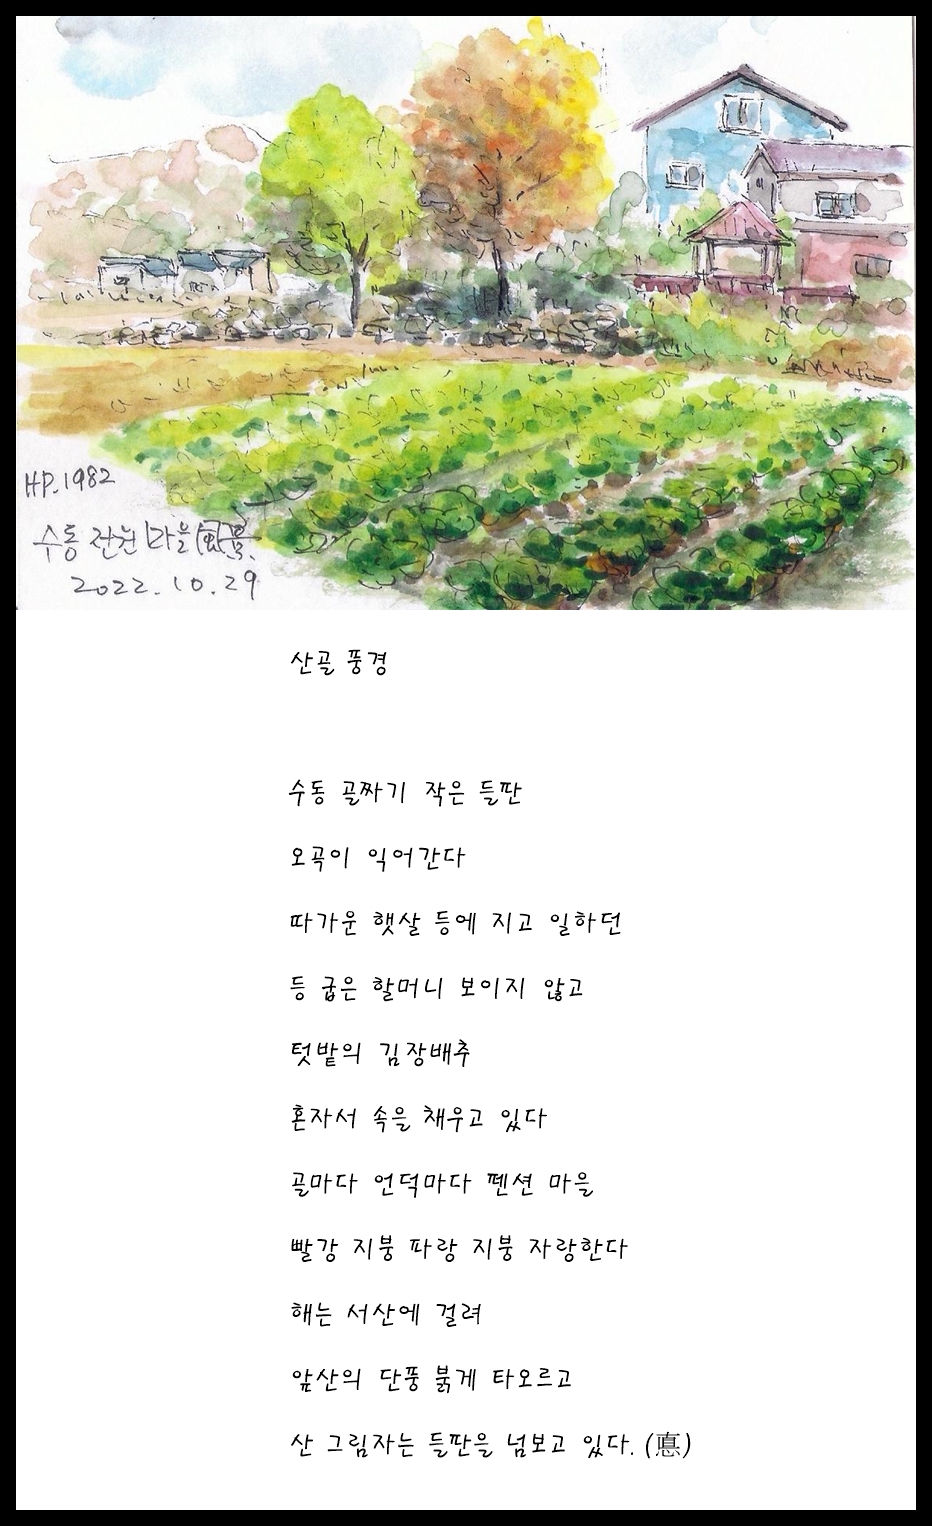 HP.1982
수동 전원마을 風景
2022.10.29
산골 풍경
수동 골짜기 작은 들판
오곡이 익어간다
따가운 햇살 등에 지고 일하던
등 굽은 할머니 보이지 않고
텃밭의 김장배추
혼자서 속을 채우고 있다
골마다 언덕마다 펜션 마을
빨강 지붕 파랑 지붕 자랑한다
해는 서산에 걸려
앞산의 단풍 붉게 타오르고
산 그림자는 들판을 넘보고 있다. (悳)